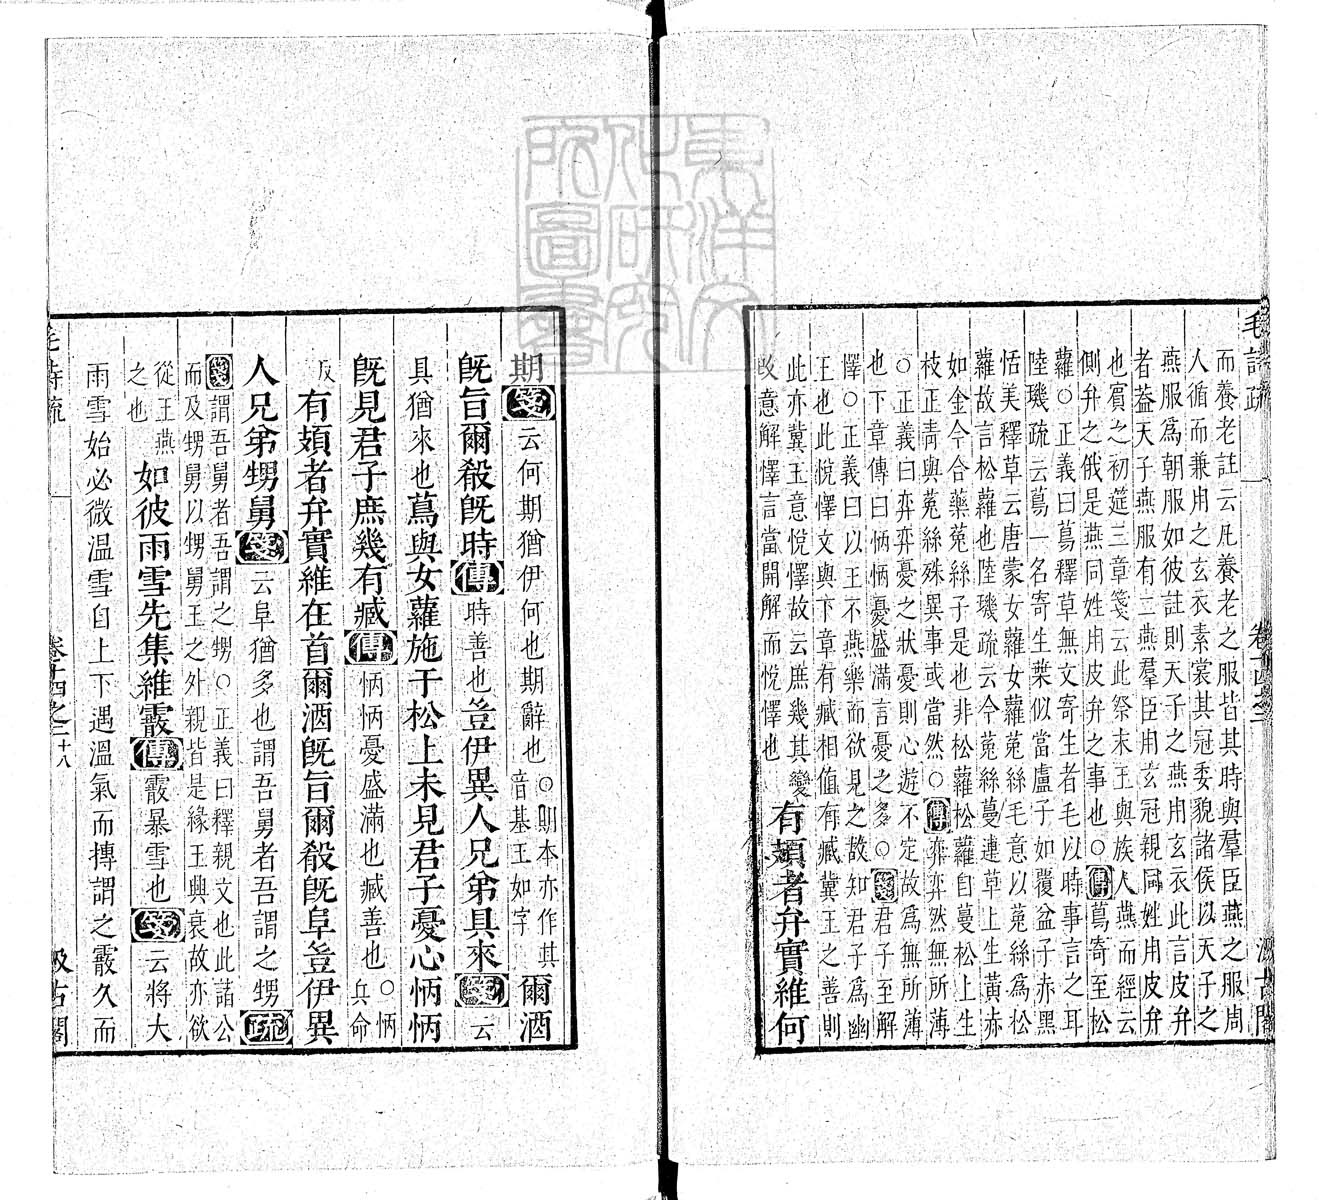 毛詩疏 卷十四之二 汲古閣
而養老註云凡養老之服皆其時與羣臣燕之服周
人循而兼用之玄衣素裳其冠委貌諸侯以天子之
燕服爲朝服如彼註則天子之燕用玄衣此言皮弁
者蓋天子燕服有二燕羣臣用玄冠親同姓用皮弁
也賓之初筵三章箋云此祭末王與族人燕而經云
側弁之俄是燕同姓用皮弁之事也○傳蔦寄至松
蘿○正義曰蔦釋草無文寄生者毛以時事言之耳
陸璣疏云蔦一名寄生葉似當盧子如覆盆子赤黑
恬美釋草云唐蒙女蘿女蘿菟絲毛意以菟絲爲松
蘿故言松蘿也陸璣疏云今菟絲蔓連草上生黃赤
如金今合藥菟絲子是也非松蘿松蘿自蔓松上生
枝正青與菟絲殊異事或當然○傳弈弈然無所薄
○正義曰弈弈憂之狀憂則心遊不定故爲無所薄
也下章傳曰怲怲憂盛滿言憂之多○箋君子至解
懌○正義曰以王不燕樂而欲見之故知君子爲幽
王也此悅懌文與下章有臧相值有臧冀王之善則
此亦冀王意悅懌故云庶幾其變
改意解懌言當開解而悅懌也
有頍者弁實維何
期箋云何期猶伊何也期辭也○期本亦作其
音基王如字
爾酒
旣旨爾殽旣時傳時善也豈伊異人兄弟具來箋云
具猶來也蔦與女蘿施于松上未見君子憂心怲怲
旣見君子庶幾有臧傳怲怲憂盛滿也臧善也○怲
兵命
反
有頍者弁實維在首爾酒旣旨爾殽旣阜豈伊異
人兄弟甥舅箋云阜猶多也謂吾舅者吾謂之甥疏
箋謂吾舅者吾謂之甥○正義曰釋親文也此諸公
而及甥舅以甥舅王之外親皆是緣王典衰故亦欲
從王燕
之也
如彼雨雪先集維霰傳霰暴雪也箋云將大
雨雪始必微溫雪自上下遇溫氣而摶謂之霰久而
毛詩疏 卷十四之二 十八 汲古閣
東洋文化研究所圖書